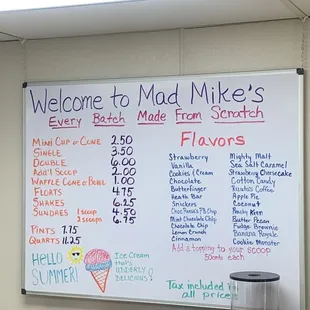 Welcome to Mad Mike's
Every Batch Made From Scratch
Mini Cup or Cone 2.50
Single 3.50
Double 6.00
Add'l Scoop 2.00
Waffle Cone or Bowl 1.00
Floats 4.75
Shakes 6.25
Sundaes 1 scoop 4.50
2 scoops 6.75
Pints 7.75
Quarts 11.25
Hello Summer!
Ice Cream
that's
UNDERLY
delicious!
Flavors
Strawberry
Vanilla
Cookies & Cream
Chocolate
Butterfinger
Heath Bar
Snickers
P.B. Chip
Mint Chocolate Chip
Chocolate Chip
Lemon Crunch
Cinnamon
Mighty Malt
Sea Salt Caramel
Strawberry Cheesecake
Cotton Candy
Coffee
Apple Pie
Coconut
Butter Pecan
Fudge Brownie
Banana Royale
Cookie Monster
Add a topping to your scoop
50¢ each
Tax included in
all prices